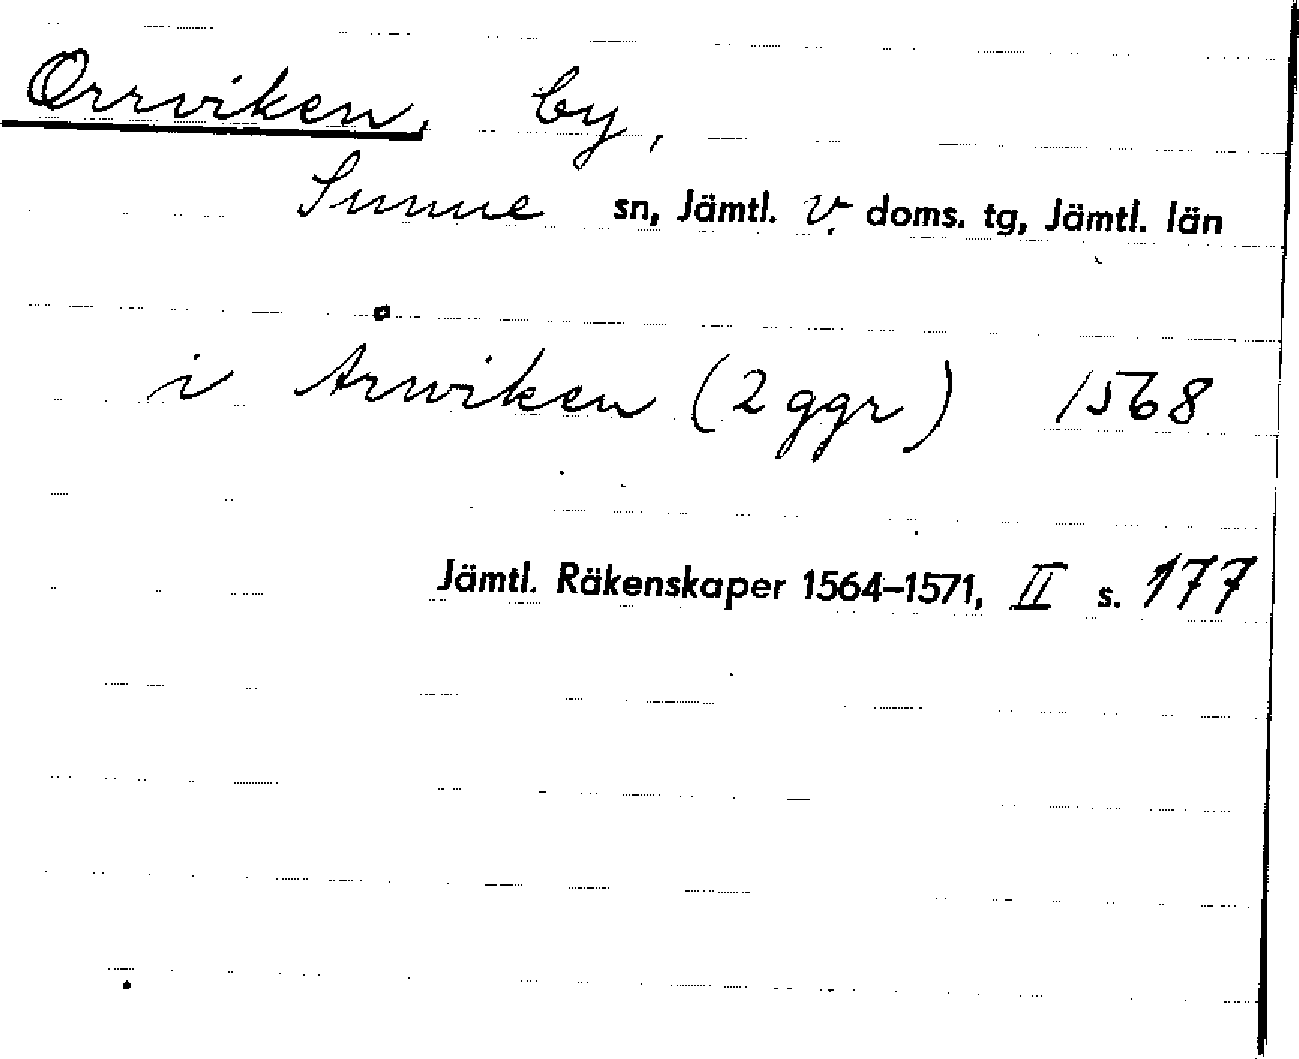 Orrviken, by,
Sunne sn, Jämtl. v. doms. tg, Jämtl. län
i Arwiken (2 ggr) 1568
Jämtl. Räkenskaper 1564–1571, II s. 177